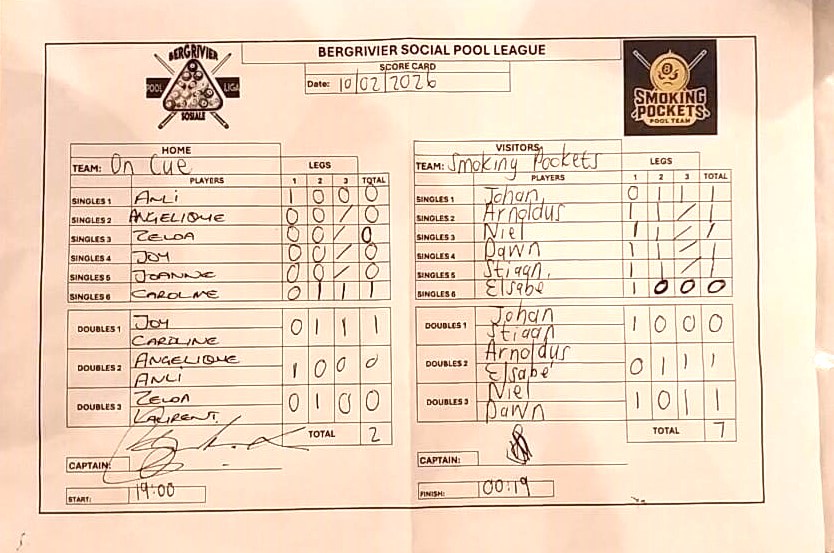 BERGRIVIER SOCIAL POOL LEAGUE
BERGRIVIER
POOL LIGA
SOSIALE
SCORE CARD
Date: 10/02/2026
8
SMOKING
POCKETS
POOL TEAM
HOME
TEAM: On Cue LEGS
PLAYERS 1 2 3 TOTAL
SINGLES 1 ANLI 1 0 0 0
SINGLES 2 ANGELIQUE 0 0 / 0
SINGLES 3 ZELDA 0 0 / 0
SINGLES 4 JOY 0 0 / 0
SINGLES 5 JOANNE 0 0 / 0
SINGLES 6 CAROLINE 0 1 1 1
DOUBLES 1 JOY 0 1 1 1
CAROLINE
DOUBLES 2 ANGELIQUE 1 0 0 0
ANLI
DOUBLES 3 ZELDA 0 1 0 0
LAURENT.
TOTAL 2
CAPTAIN:
START: 19:00
VISITORS
TEAM: Smoking Pockets LEGS
PLAYERS 1 2 3 TOTAL
SINGLES 1 Johan 0 1 1 1
SINGLES 2 Arnoldus 1 1 / 1
SINGLES 3 Niel 1 1 / 1
SINGLES 4 Dawn 1 1 / 1
SINGLES 5 Stiaan. 1 1 / 1
SINGLES 6 Elsabe 1 0 0 0
DOUBLES 1 Johan 1 0 0 0
Stiaan
DOUBLES 2 Arnoldus 0 1 1 1
Elsabe
DOUBLES 3 Niel 1 0 1 1
Dawn
TOTAL 7
CAPTAIN:
FINISH: 00:19